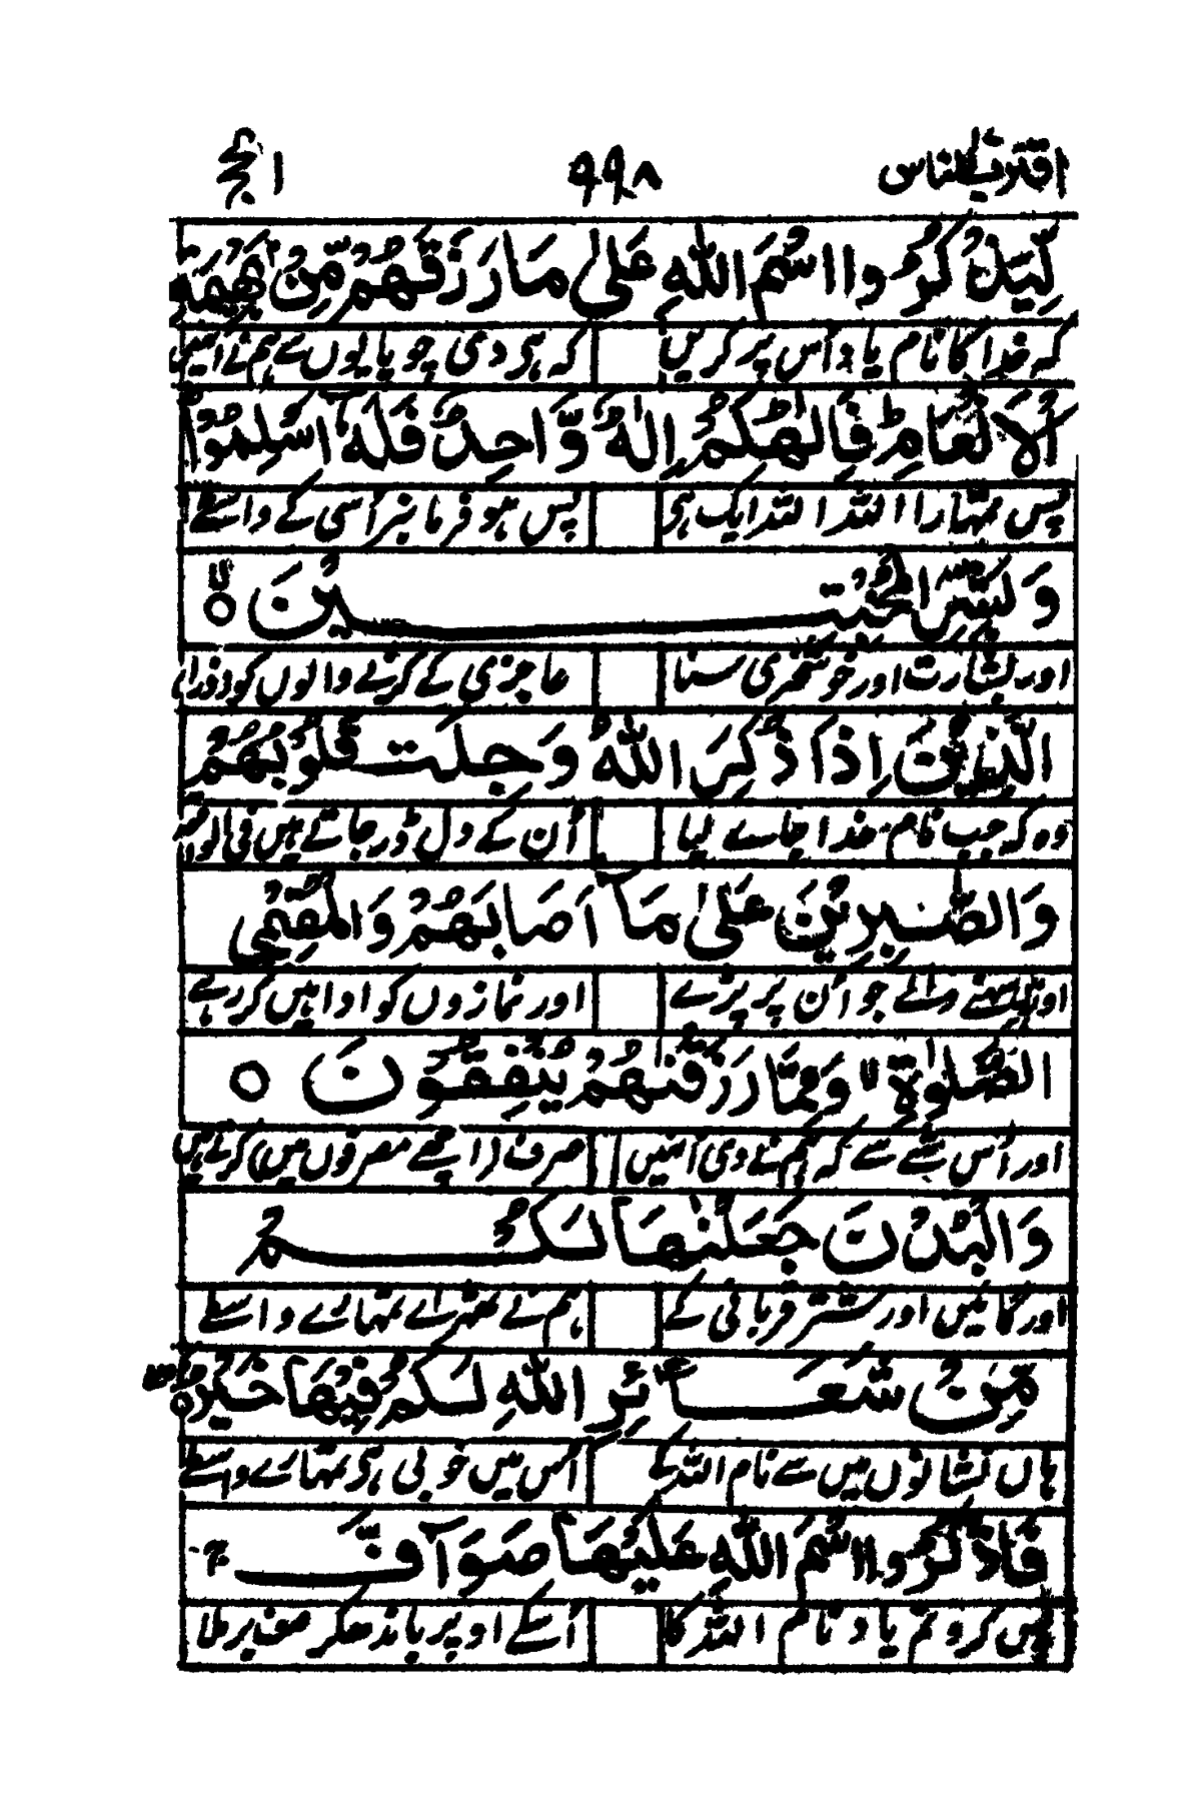 اقترب للناس ۹۹۸ الحج
لِّيَذْكُرُوا اسْمَ اللّٰهِ عَلٰى مَا رَزَقَهُمْ مِّنْ بَهِيْمَةِ
کہ خدا کا نام یاد اس پر کریں کہ ہی دی چوپایوں سے ہم نے انہیں
الْاَنْعَامِ ؕ فَاِلٰهُكُمْ اِلٰهٌ وَّاحِدٌ فَلَهٗۤ اَسْلِمُوْا
پس تمہارا اللہ اللہ ایک ہی پس ہو فرمانبر اسی کے واسطے
وَبَشِّرِ الْمُخْبِتِيْنَ ۙ
اور بشارت اور خوشخبری سنا عاجزی کے کرنے والوں کو ذرا
الَّذِيْنَ اِذَا ذُكِرَ اللّٰهُ وَجِلَتْ قُلُوْبُهُمْ
وہ کہ جب نام خدا جاے لیا اُن کے دل ڈر جاتے ہیں فی
وَالصّٰبِرِيْنَ عَلٰى مَاۤ اَصَابَهُمْ وَالْمُقِيْمِي
سہنے والے جو اُن پر پڑے اور نمازوں کو ادا ہیں کر رہے
الصَّلٰوةِ ۙ وَمِمَّا رَزَقْنٰهُمْ يُنْفِقُوْنَ ○
اور اُس شے سے کہ ہم نے دی انہیں صرف (اچھے مصرفوں میں) کرتے ہیں
وَالْبُدْنَ جَعَلْنٰهَا لَكُمْ
اور گائیں اور شتر قربانی کے ہم نے ٹھہرائے تمہارے واسطے
مِّنْ شَعَآئِرِ اللّٰهِ لَكُمْ فِيْهَا خَيْرٌ
ہاں نشانوں میں سے نام اللہ کے اس میں خوبی ہی تمہارے واسطے
فَاذْكُرُوا اسْمَ اللّٰهِ عَلَيْهَا صَوَآفَّ ۚ
پس کرو تم یاد نام اللہ کا اُسکے اوپر باندھکر صف برملا